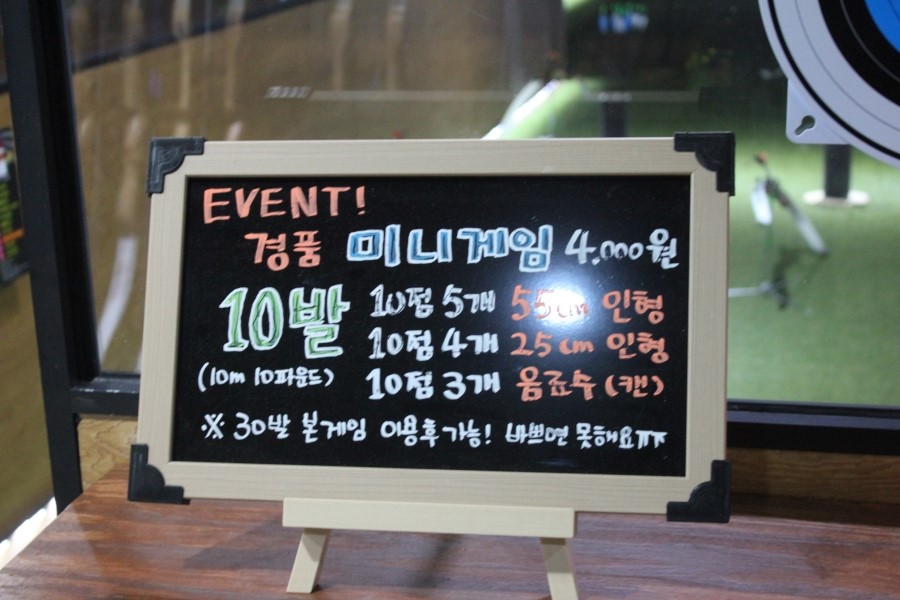 EVENT!
경품 미니게임 4,000원
10발 10점 5개 55cm 인형
10점 4개 25cm 인형
(10m 10파운드) 10점 3개 음료수(캔)
※ 30발 본게임 이용후 가능! 바쁘면 못해요ㅠㅠ